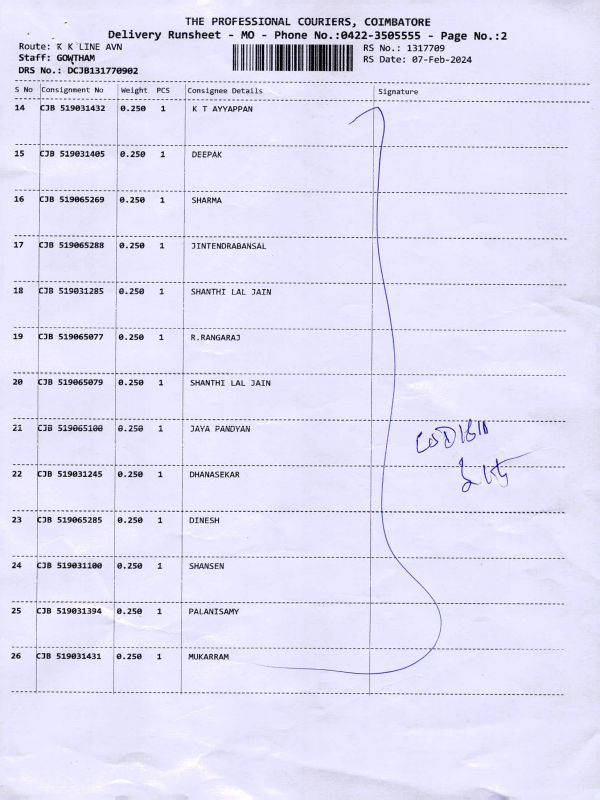 THE PROFESSIONAL COURIERS, COIMBATORE
Delivery Runsheet - MO - Phone No.:0422-3505555 - Page No.:2
Route: K K LINE AVN
RS No.: 1317709
Staff: GOWTHAM
RS Date: 07-Feb-2024
DRS No.: DCJB131770902
S No Consignment No Weight PCS Consignee Details Signature
14 CJB 519031432 0.250 1 K T AYYAPPAN
15 CJB 519031405 0.250 1 DEEPAK
16 CJB 519065269 0.250 1 SHARMA
17 CJB 519065288 0.250 1 JINTENDRABANSAL
18 CJB 519031285 0.250 1 SHANTHI LAL JAIN
19 CJB 519065077 0.250 1 R.RANGARAJ
20 CJB 519065079 0.250 1 SHANTHI LAL JAIN
21 CJB 519065100 0.250 1 JAYA PANDYAN
22 CJB 519031245 0.250 1 DHANASEKAR
23 CJB 519065285 0.250 1 DINESH
24 CJB 519031100 0.250 1 SHANSEN
25 CJB 519031394 0.250 1 PALANISAMY
26 CJB 519031431 0.250 1 MUKARRAM